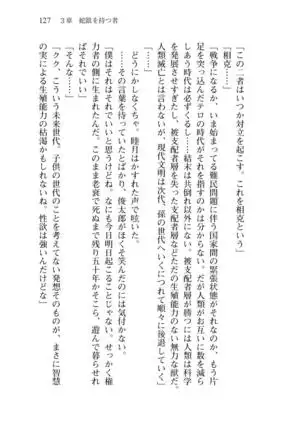 127　3章　蛇眼を持つ者
「この二者はいつか対立を起こす。これを相克という」
「相克……」
「戦争になるか、いま始まってる難民問題に伴う国家間の緊張状態がそれなのか、もう片
足を突っ込んだテロの時代がそれを指すのかは分からない。だが人類がお互いに数を減ら
しあう時代は必ずくるし……結末は共倒れ以外にない。被支配者層が勝つには人類は科学
を発展させすぎたし、被支配者層を失った支配者層などただの生殖能力のない無力な獣だ。
人類滅亡とは言わないが、現代文明は次代、孫の世代へいくにつれて順々に後退していく」
「どうにかしなくちゃ。睦月はかすれた声で呟いた。
……その言葉を待っていたとばかり、俊太郎がほくそ笑んだのには気付かない。
「僕はそれはそれでいいと思うけどね。なにも今日明日起こることじゃない。せっかく権
力者の側に生まれたんだ、このまま老衰で死ぬまで残り五十年かそこら、遊んで暮らせれ
ばそれでいい」
「そんな……」
「クク、こういう未来世代、子供の世代のことを考えてない発想そのものが、まさに智慧
の実による生殖能力の枯渇かもしれないね。性欲は強いんだけどな」